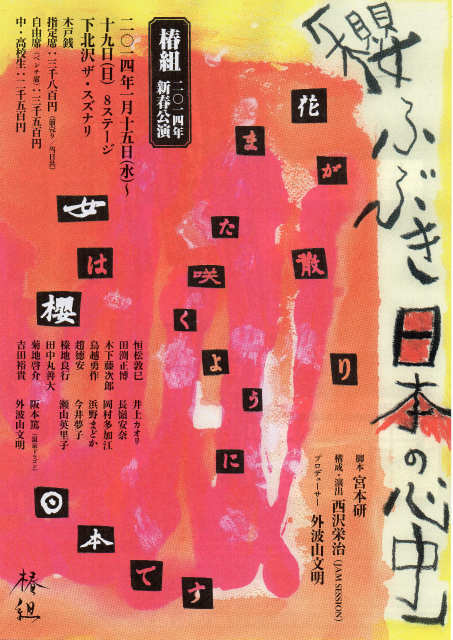 「櫻ふぶき日本の心中」
花が散り
また咲くように
女は櫻
日本です
脚本 宮本研
構成・演出 西沢栄治(JAM SESSION)
プロデューサー 外波山文明
椿組 二〇一四年 新春公演
二〇一四年一月十五日(水)〜
十九日(日) 8ステージ
下北沢ザ・スズナリ
木戸銭
指定席:三千八百円(前売り・当日共)
自由席(ベンチ席):三千五百円
中・高校生:二千五百円
恒松敦巳
田渕正博
木下藤次郎
鳥越勇作
趙徳安
田中丸善大
菊地啓介
吉田裕貴
井上カオリ
長嶺安奈
岡村多加江
浜野まどか
今井夢子
瀬山英里子
阪本篤(温泉ドラゴン)
外波山文明
椿組